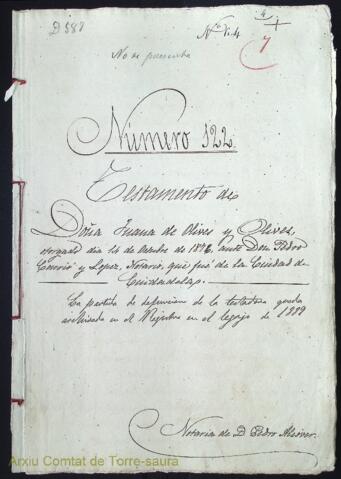 D 587
Nº 14
4
7
No se presenta
Número 122
Testamento de
Doña Juana de Olives y Olives,
otorgado día 14 de Octubre de 1876 ante Don Pedro
y Lopez, Notario, que fué de la Ciudad de
Ciudadelap.
La partida de defuncion de la testadora queda
archivada en el Registro en el legajo de 1889
Notaria de D. Pedro Alsover.
Arxiu Comtat de Torre-saura